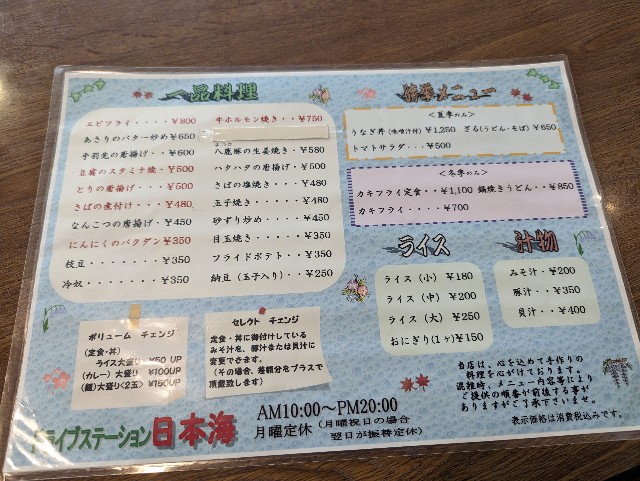 一品料理
エビフライ・・・・・¥800
あさりのバター炒め¥650
手羽先の唐揚げ・・¥600
豆腐のスタミナ焼・¥500
とりの唐揚げ・・・¥500
さばの煮付け・・・¥480
なんこつの唐揚げ・¥450
にんにくのバクダン¥350
枝豆・・・・・・・・¥350
冷奴・・・・・・・・¥350
牛ホルモン焼き・・¥750
八鹿豚の生姜焼き・¥580
ハタハタの唐揚げ・¥500
さばの塩焼き・・・¥480
玉子焼き・・・・・¥480
砂ずり炒め・・・・¥450
目玉焼き・・・・・¥350
フライドポテト・・¥350
納豆(玉子入り)・・¥250
季節メニュー
<夏季のみ>
うなぎ丼(味噌汁付)¥1,250 ざる(うどん・そば)¥650
トマトサラダ・・・¥500
<冬季のみ>
カキフライ定食・・¥1,100 鍋焼きうどん・・¥850
カキフライ・・・・¥700
ライス
ライス(小)¥180
ライス(中)¥200
ライス(大)¥250
おにぎり(1ヶ)¥150
汁物
みそ汁・・¥200
豚汁・・・¥350
貝汁・・・¥400
ボリューム チェンジ
(定食・丼)
ライス大盛り ¥50 UP
(カレー)大盛り ¥100UP
(麺)大盛り<2玉> ¥150UP
セレクト チェンジ
定食・丼に御付けしている
みそ汁を、豚汁または貝汁に
変更できます。
(その場合、差額分をプラスで
頂戴致します)
当店は、心を込めて手作りの
料理を心がけております。
混雑時、メニュー内容等により
ご提供の順番が前後する事が
ありますがご了承下さいませ。
表示価格は消費税込みです。
ドライブステーション日本海
AM10:00~PM20:00
月曜定休(月曜祝日の場合
翌日が振替定休)